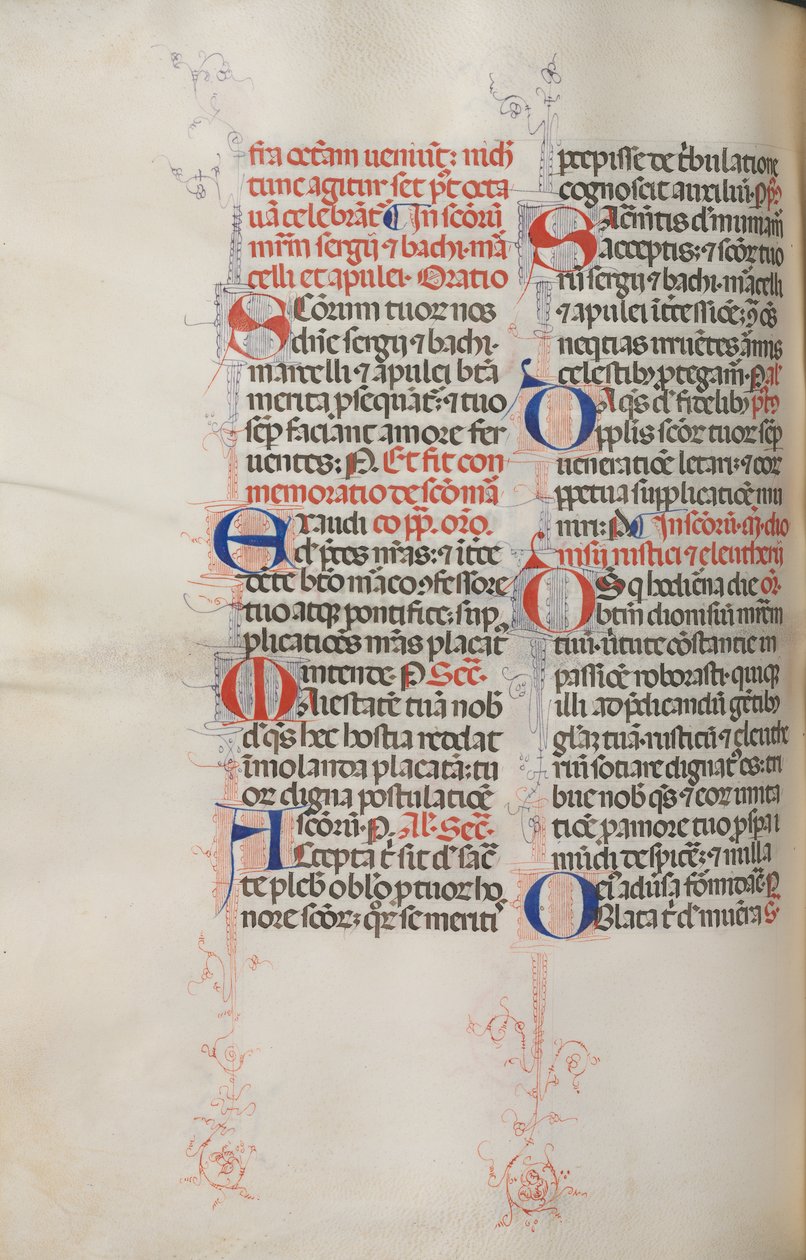 fra octam ueniūt: nich
tunc agitur set p't octa
uā celebrāt' In scōrū
mr̄m sergij ⁊ bachi· mā
celli et apulei· Oratio
SCōrum tuor nos
dn̄e sergij ⁊ bachi·
marcelli ⁊ apulei btā
merita p̄sequāt': ⁊ tuo
semp̄ faciant amore fer
uentes: P. Et fit con
memoratio de scō mā
Exaudi co pp̄. or̄o.
dn̄e p̄ces nr̄as: ⁊ ītce
dēte btō mā cōfessore
tuo atq̨ pontifice: sup
plicatiōes nr̄as placat'
intende· P Secr̄.
Maiestatē tuā nob
d' q̄s hec hostia reddat
īmolanda placatā: tu
or digna postulatiōe
scōrū· P. Al'. Secr̄.
Accepta t' sit d' sac̄
te pleb' oblo p̄ tuor ho
nore scōr: q̄r se meriti
p̄cepisse de t'bulatione
cognoscit auxiliū· Pp'
Sacr̄mtis dn̄e muniam'
acceptis: ⁊ scōr tuo
rū sergij ⁊ bachi· mācelli
⁊ apulei ītcessiōe: 9 oēs
neqtias irruētes armis
celestib' p̄tegam'· P Al'
Da q̄s d' fidelib' p't9
pplis scōr tuor semp̄
ueneratiōe letari: ⁊ eor
ppetua supplicatiōe mu
niri: P. In scōrū· m̄· dio
nisij rustici ⁊ eleutherij
DS q hodiērna die or̄·
btm̄ dionisiū mr̄em
tuū· uirtute cōstantie in
passiōe roborasti· quiq̨
illi ad p̄dicandū gētib'
glaz tuā· rusticū ⁊ eleuthe
riū sociare dignat' es: tri
bue nob' q̄s ⁊ eor imita
tiōe p̄ amore tuo p̄spa
mūdi despice: ⁊ nulla
ei9 adūsa formidaē P
Oblata t' d' munera S